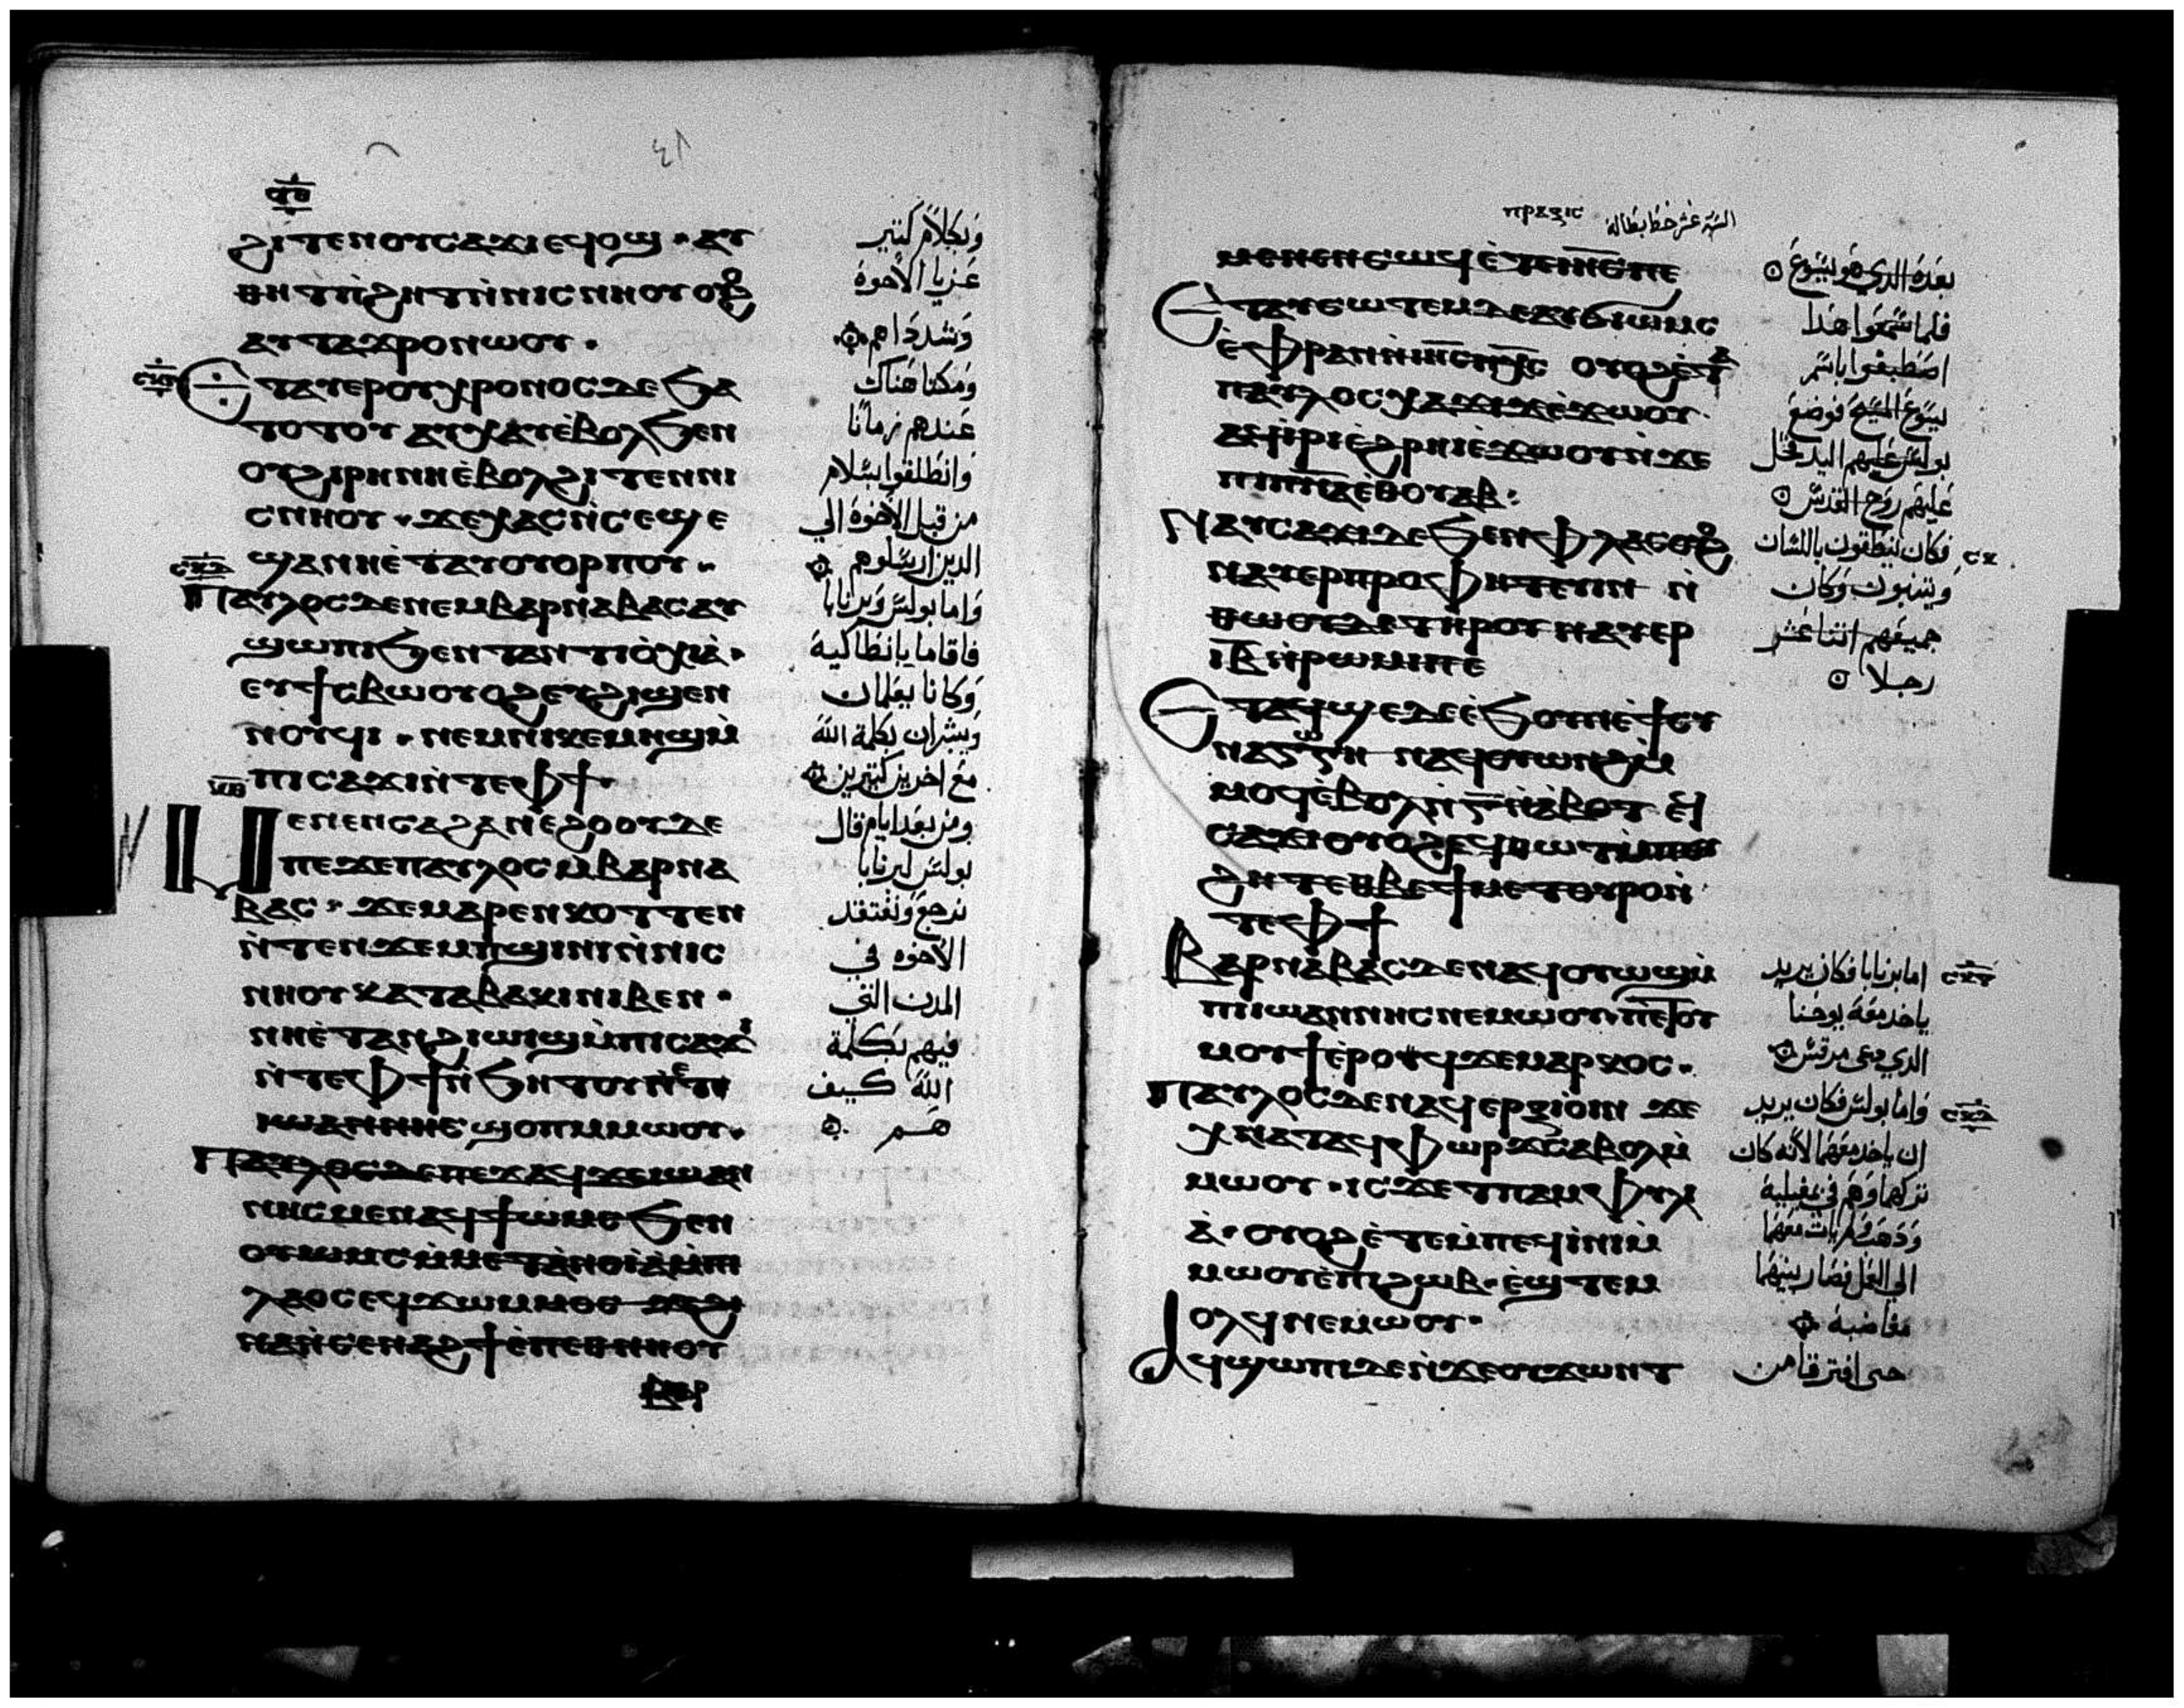 ϥⲑ
ϩⲓⲧⲉⲛⲟⲩⲥⲁϫⲓⲉϥⲟϣ · ⲁⲩ
ⲑⲏⲧⲡⲓϩⲏⲧⲛ̀ⲛⲓⲥⲛⲏⲟⲩⲟϩ
ⲁⲩⲧⲁϫⲣⲟⲛⲱⲟⲩ ·
Ⲉⲧⲁⲩⲉⲣⲟⲩⲭⲣⲟⲛⲟⲥⲇⲉϧⲁ
ⲧⲟⲧⲟⲩ ⲁⲩⲭⲁⲩⲉ̀ⲃⲟⲗϧⲉⲛ
ⲟⲩϩⲓⲣⲏⲛⲏⲉ̀ⲃⲟⲗϩⲓⲧⲉⲛⲛⲓ
ⲥⲛⲏⲟⲩ · ϫⲉⲭⲁⲥⲛ̀ⲥⲉϣⲉ
ϣⲁⲛⲏⲉ̀ⲧⲁⲩⲟⲩⲟⲣⲡⲟⲩ ·
Ⲡⲁⲩⲗⲟⲥⲇⲉⲛⲉⲙⲃⲁⲣⲛⲁⲃⲁⲥⲁⲩ
ϣⲱⲡⲓϧⲉⲛⲧⲁⲛⲧⲓⲟ̀ⲭⲓⲁ̀ ·
ⲉⲩϯⲥⲃⲱⲟⲩⲟϩⲉⲩϩⲓϣⲉⲛ
ⲛⲟⲩϥⲓ · ⲛⲉⲙⲛⲓⲕⲉⲙⲏϣⲙ̀
ⲡⲓⲥⲁϫⲓⲛ̀ⲧⲉⲫϯ ·
Ⲙⲉⲛⲉⲛⲥⲁϩⲁⲛⲉϩⲟⲟⲩⲇⲉ
ⲡⲉϫⲉⲡⲁⲩⲗⲟⲥⲙ̀ⲃⲁⲣⲛⲁ
ⲃⲁⲥ · ϫⲉⲙⲁⲣⲉⲛⲕⲟⲧⲧⲉⲛ
ⲛ̀ⲧⲉⲛϫⲉⲙⲡϣⲓⲛⲓⲛ̀ⲛⲓⲥ
ⲛⲏⲟⲩⲕⲁⲧⲁⲃⲁⲕⲓⲛⲓⲃⲉⲛ ·
ⲛⲏⲉ̀ⲧⲁⲛϩⲓⲱⲓϣⲙ̀ⲡⲓⲥⲁϫⲓ
ⲛ̀ⲧⲉⲫϯⲛ̀ϧⲏⲧⲟⲩ
ⲓⲱⲁⲛⲛⲏⲥϣⲟⲡⲙⲙⲱⲟⲩ ·
Ⲡⲁⲩⲗⲟⲥⲇⲉⲡⲉϫⲁϥϫⲉⲓⲱⲁⲛ
ⲛⲏⲥⲙⲉⲛⲁϥϯⲱⲙⲥϧⲉⲛ
ⲟⲩⲱⲙⲥⲙ̀ⲙⲉⲧⲁ̀ⲛⲟⲓⲁ̀ⲙ̀ⲡⲓ
ⲗⲁⲟⲥⲉϥϫⲱⲙⲙⲟⲥ ϫⲉϩⲓ
ⲛⲁⲛ̀ⲥⲉⲛⲁϩϯⲉ̀ⲡⲉⲑⲛⲏⲟⲩ
وبكلام كثير
عزيا الاخوة
وشدداهم
ومكثا هناك
عندهم زمانا
وانطلقوا بسلام
من قبل الاخوة الي
الدين ارسلوهم
واما بولس وبرنابا
فاقاما بانطاكية
وكانا يعلمان
ويبشران بكلمة الله
مع اخرين كتيرين
ومن بعد ايام قال
بولس لبرنابا
نرجع ونفتقد
الاخوه في
المدن التي
فيهم بكلمة
الله كيف
هم
ⲡⲣⲁⲝⲓⲥ
ⲙⲉⲛⲉⲛⲥⲱϥⲉ̀ⲧⲉⲓⲏⲥⲡⲉ
Ⲉⲧⲁⲩⲥⲱⲧⲉⲙⲇⲉⲁⲩϭⲓⲱⲙⲥ
ⲉ̀ⲫⲣⲁⲛⲛ̀ⲓⲏⲥⲡⲭⲥ ⲟⲩⲟϩⲉ̀ⲧⲁ
ⲡⲁⲩⲗⲟⲥⲭⲁϫⲓϫⲉ̀ϫⲱⲟⲩ
ⲁϥⲓ̀ⲣⲓⲉ̀ϩⲣⲏⲓⲉ̀ϫⲱⲟⲩⲛ̀ϫⲉ
ⲡⲓⲡⲛⲁⲉ̀ⲑⲟⲩⲁⲃ :
Ⲛⲁⲩⲥⲁϫⲓⲇⲉϧⲉⲛⲫⲗⲁⲥⲟϩ
ⲛⲁⲩⲉⲣⲡⲣⲟⲫⲏⲧⲉⲩⲓⲛ ⲛ̀
ⲑⲱⲟⲩⲇⲉⲧⲏⲣⲟⲩ ⲛⲁⲩⲉⲣ
ⲓⲃ ⲛ̀ⲣⲱⲙⲓⲡⲉ
Ⲉⲧⲁϥϣⲉⲇⲉⲉ̀ϧⲟⲩⲛⲉ̀ϯⲥⲩ
ⲛⲁⲅⲱⲅⲏ ⲛⲁϥⲟⲩⲱⲛϩⲙ̀
ⲙⲟϥⲉ̀ⲃⲟⲗⲛ̀ⲅ̅ⲛ̀ⲁ̀ⲃⲟⲧ ⲉϥ
ⲥⲁϫⲓⲟⲩⲟϩⲉϥⲑⲱⲧⲙ̀ⲡⲟⲩ
ϩⲏⲧⲉⲑⲃⲉϯⲙⲉⲧⲟⲩⲣⲟⲛ̀
ⲧⲉⲫϯ
Ⲃⲁⲣⲛⲁⲃⲁⲥⲇⲉⲛⲁϥⲟⲩⲱϣⲙ̀
ⲡⲓⲱⲁⲛⲛⲏⲥⲛⲉⲙⲱⲟⲩ·ⲡⲉⲧⲟⲩ
ⲙⲟⲩϯⲉ̀ⲣⲟⲩϥϫⲉⲙⲁⲣⲕⲟⲥ ·
Ⲡⲁⲩⲗⲟⲥⲇⲉⲛⲁϥⲉⲣⲝⲓⲟ̀ⲓⲛ ϫⲉ
ⲭⲛⲁ̀ⲧⲁϥⲫⲱⲣϫⲥⲁⲃⲟⲗⲙ̀
ⲙⲱⲟⲩ · ⲓⲥϫⲉⲧⲡⲁⲙⲫⲩⲗ
ⲁ̀ · ⲟⲩⲟϩⲉ̀ⲧⲉⲙ̀ⲡⲉϥⲓ̀ⲛⲓⲙ̀
ⲙⲱⲟⲩⲉ̀ⲡⲓϩⲱⲃ · ⲉ̀ϣⲧⲉⲙ
ⲟⲗϥⲛⲉⲙⲱⲟⲩ ·
Ⲁϥϣⲱⲡⲓⲇⲉⲛ̀ϫⲉⲟⲩϫⲱⲛⲧ
بعده الدي هو ليسوع
فلما سمعوا هدا
اصطبغوا باسم
يسوع المسيح فوضع
بولس عليهم اليد فحل
عليهم روح القدس
فكان ينطقون باللسان
ويتنبون وكان
جميعهم اثنا عشر
رجلا
اما برنابا فكان يريد
ياخد معه يوحنا
الدي دعي مرقس
واما بولس فكان يريد
ان ياخد معهما لانه كان
تركهما وهم في بمفيلية
الي العمل فصار بينهما
مغاضبة
حتى افترقا من